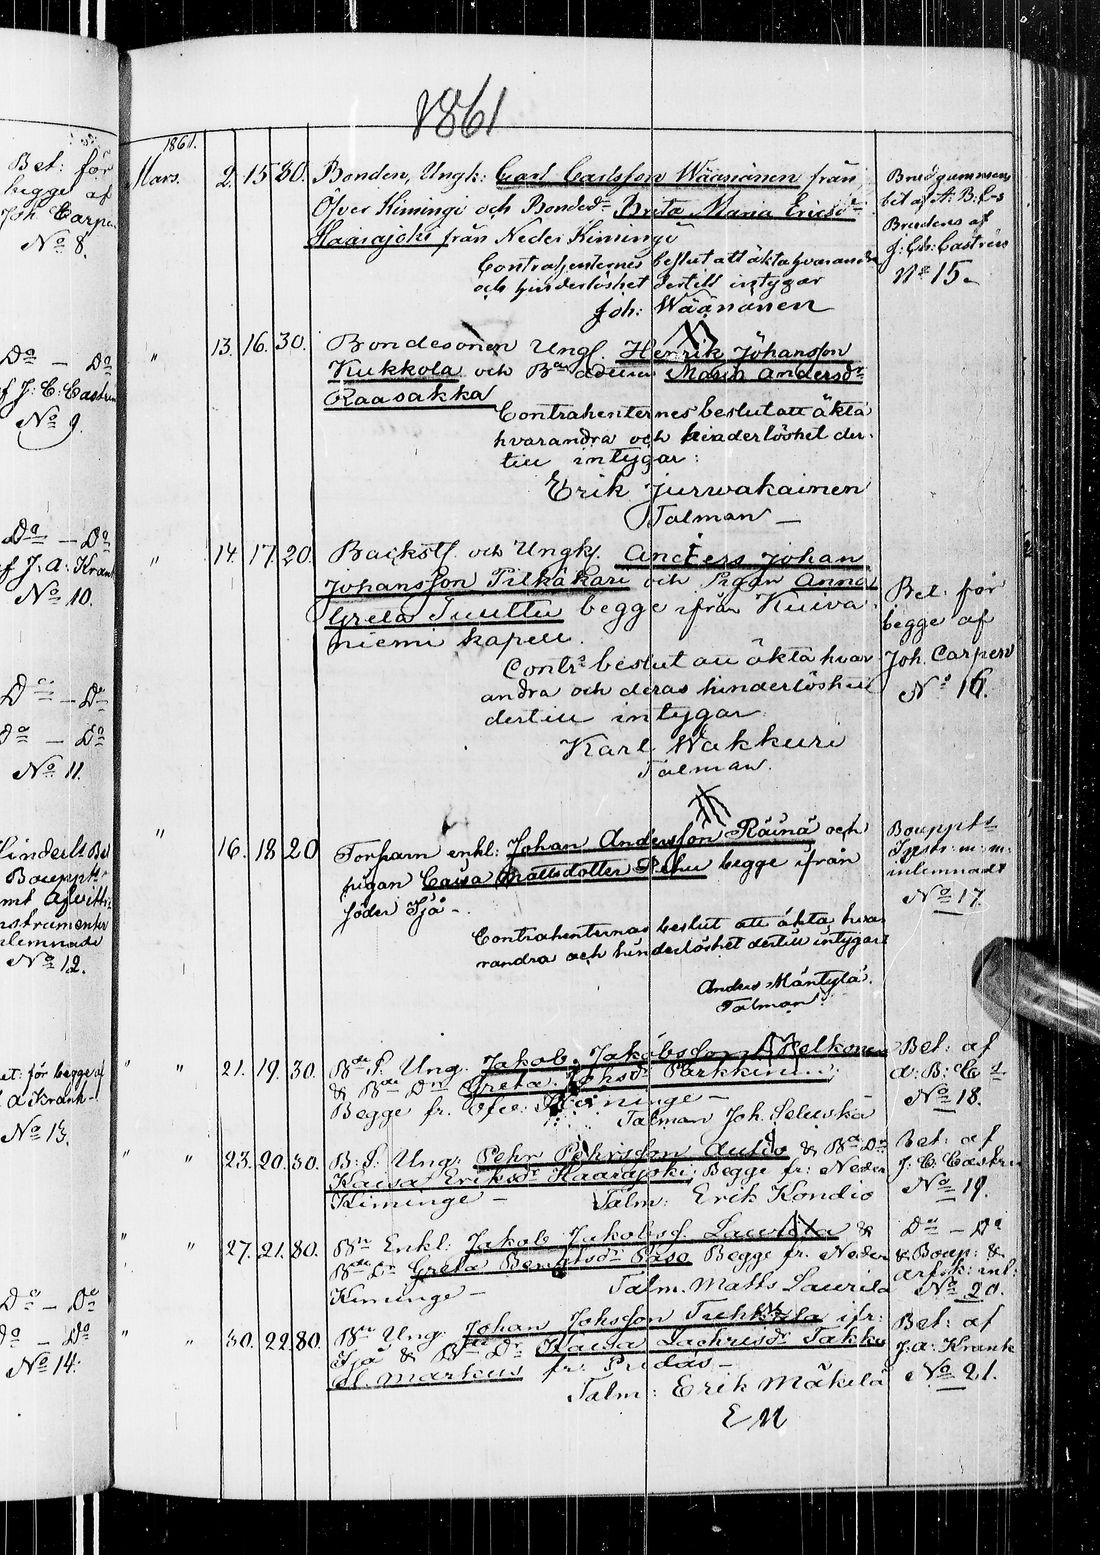 1861
Bet: för
begge af
Joh. Carpen
No 8.
Do — Do
af J. C. Castrén
No 9.
Do — Do
af J. A. Krank
No 10.
Do — Do
Do — Do
No 11.
Bouppt
No 12.
Bet: för begge af
J. A. Krank
No 13.
Do — Do
Do — Do
No 14.
1861.
Mars. 2. 15 30. Bonden, Ungk: Carl Carlsson Wäänänen från
Öfver Kiimingi och Bonded. Brita Maria Ericsdr
Haarajoki från Neder Kiimingi
Contrahenternes beslut att äkta hvarandra
och hinderlöshet dertill intygar
Joh: Wäänänen
Brudgummens
bet af A: B: C-s
Brudens af
J. Ch: Castrén
No 15.
" 13. 16. 30. Bondesonen Ungk. Henrik Johansson
Kukkola och Maria Andersdr
Raasakka
Contrahenternes beslut att äkta
hvarandra och hinderlöshet der-
till intygar:
Erik Jurwakainen
Talman —
" 14. 17. 20. Backst. och Ungk. Anders Johan
Johansson Pilkäkari och Pigan Anna
Greta Tuuttu begge ifrån Kuiva
niemi kapell.
Contrs beslut att äkta hvar
andra och deras hinderlöshet
dertill intygar
Karl Wakkuri
Talman.
Bet: för
begge af
Joh. Carpen
No 16.
" 16. 18 20 Torparn enkl: Johan Andersson Räinä och
pigan Caisa Mattsdotter Pehu begge ifrån
Jöder Ijå.
Contrahenternas beslut att äkta hva
randra och hinderlöshet dertill intygar
Anders Mäntylä.
Talman.
Bouppts
m: m:
inlemnadt
No 17.
" " 21. 19. 30. Bde S. Ung. Jakob Jakobsson
& Bde Dr Greta Johsdr Parkkin
Begge fr. Öfve: Kiminge —
Talman Joh. Seluska
Bet: af
A: B: C-s
No 18.
" " 23. 20. 30. B: S. Ung: Pehr Pehrsson Autio & Bde Dr
Kaisa Eriksdr Haarajoki; Begge fr: Neder
Kiminge — Talm: Erik Kondio
Bet: af
J. C. Castrén
No 19.
" " 27. 21. 80. Bde Enkl: Jakob Jakobss. Laurila &
Bde Dr Greta Bengtsdr Paso Begge fr. Neder
Kiminge — Talm. Matts Laurila
Do — Do
& Boup: &
inl:
No 20.
" " 30. 22 80. Bde Ung. Johan Johsson Tuhkala ifr:
Ijå & Bde Dr Kaisa Zachrisdr Takku
fr: Pudas —
Talm: Erik Mäkelä
E M
Bet: af
J. A: Krank
No 21.